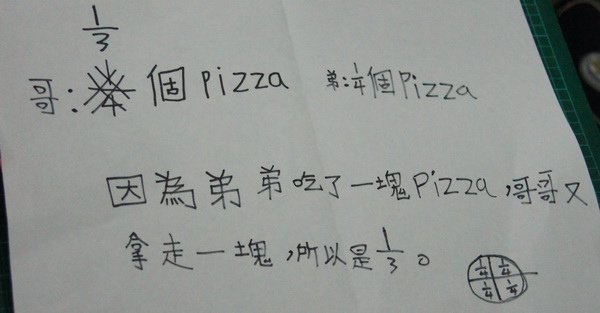 1/3
哥:個pizza 弟:1/4個pizza
因為弟弟吃了一塊Pizza,哥哥又
拿走一塊,所以是1/3。
1/4 1/4
1/4 1/4